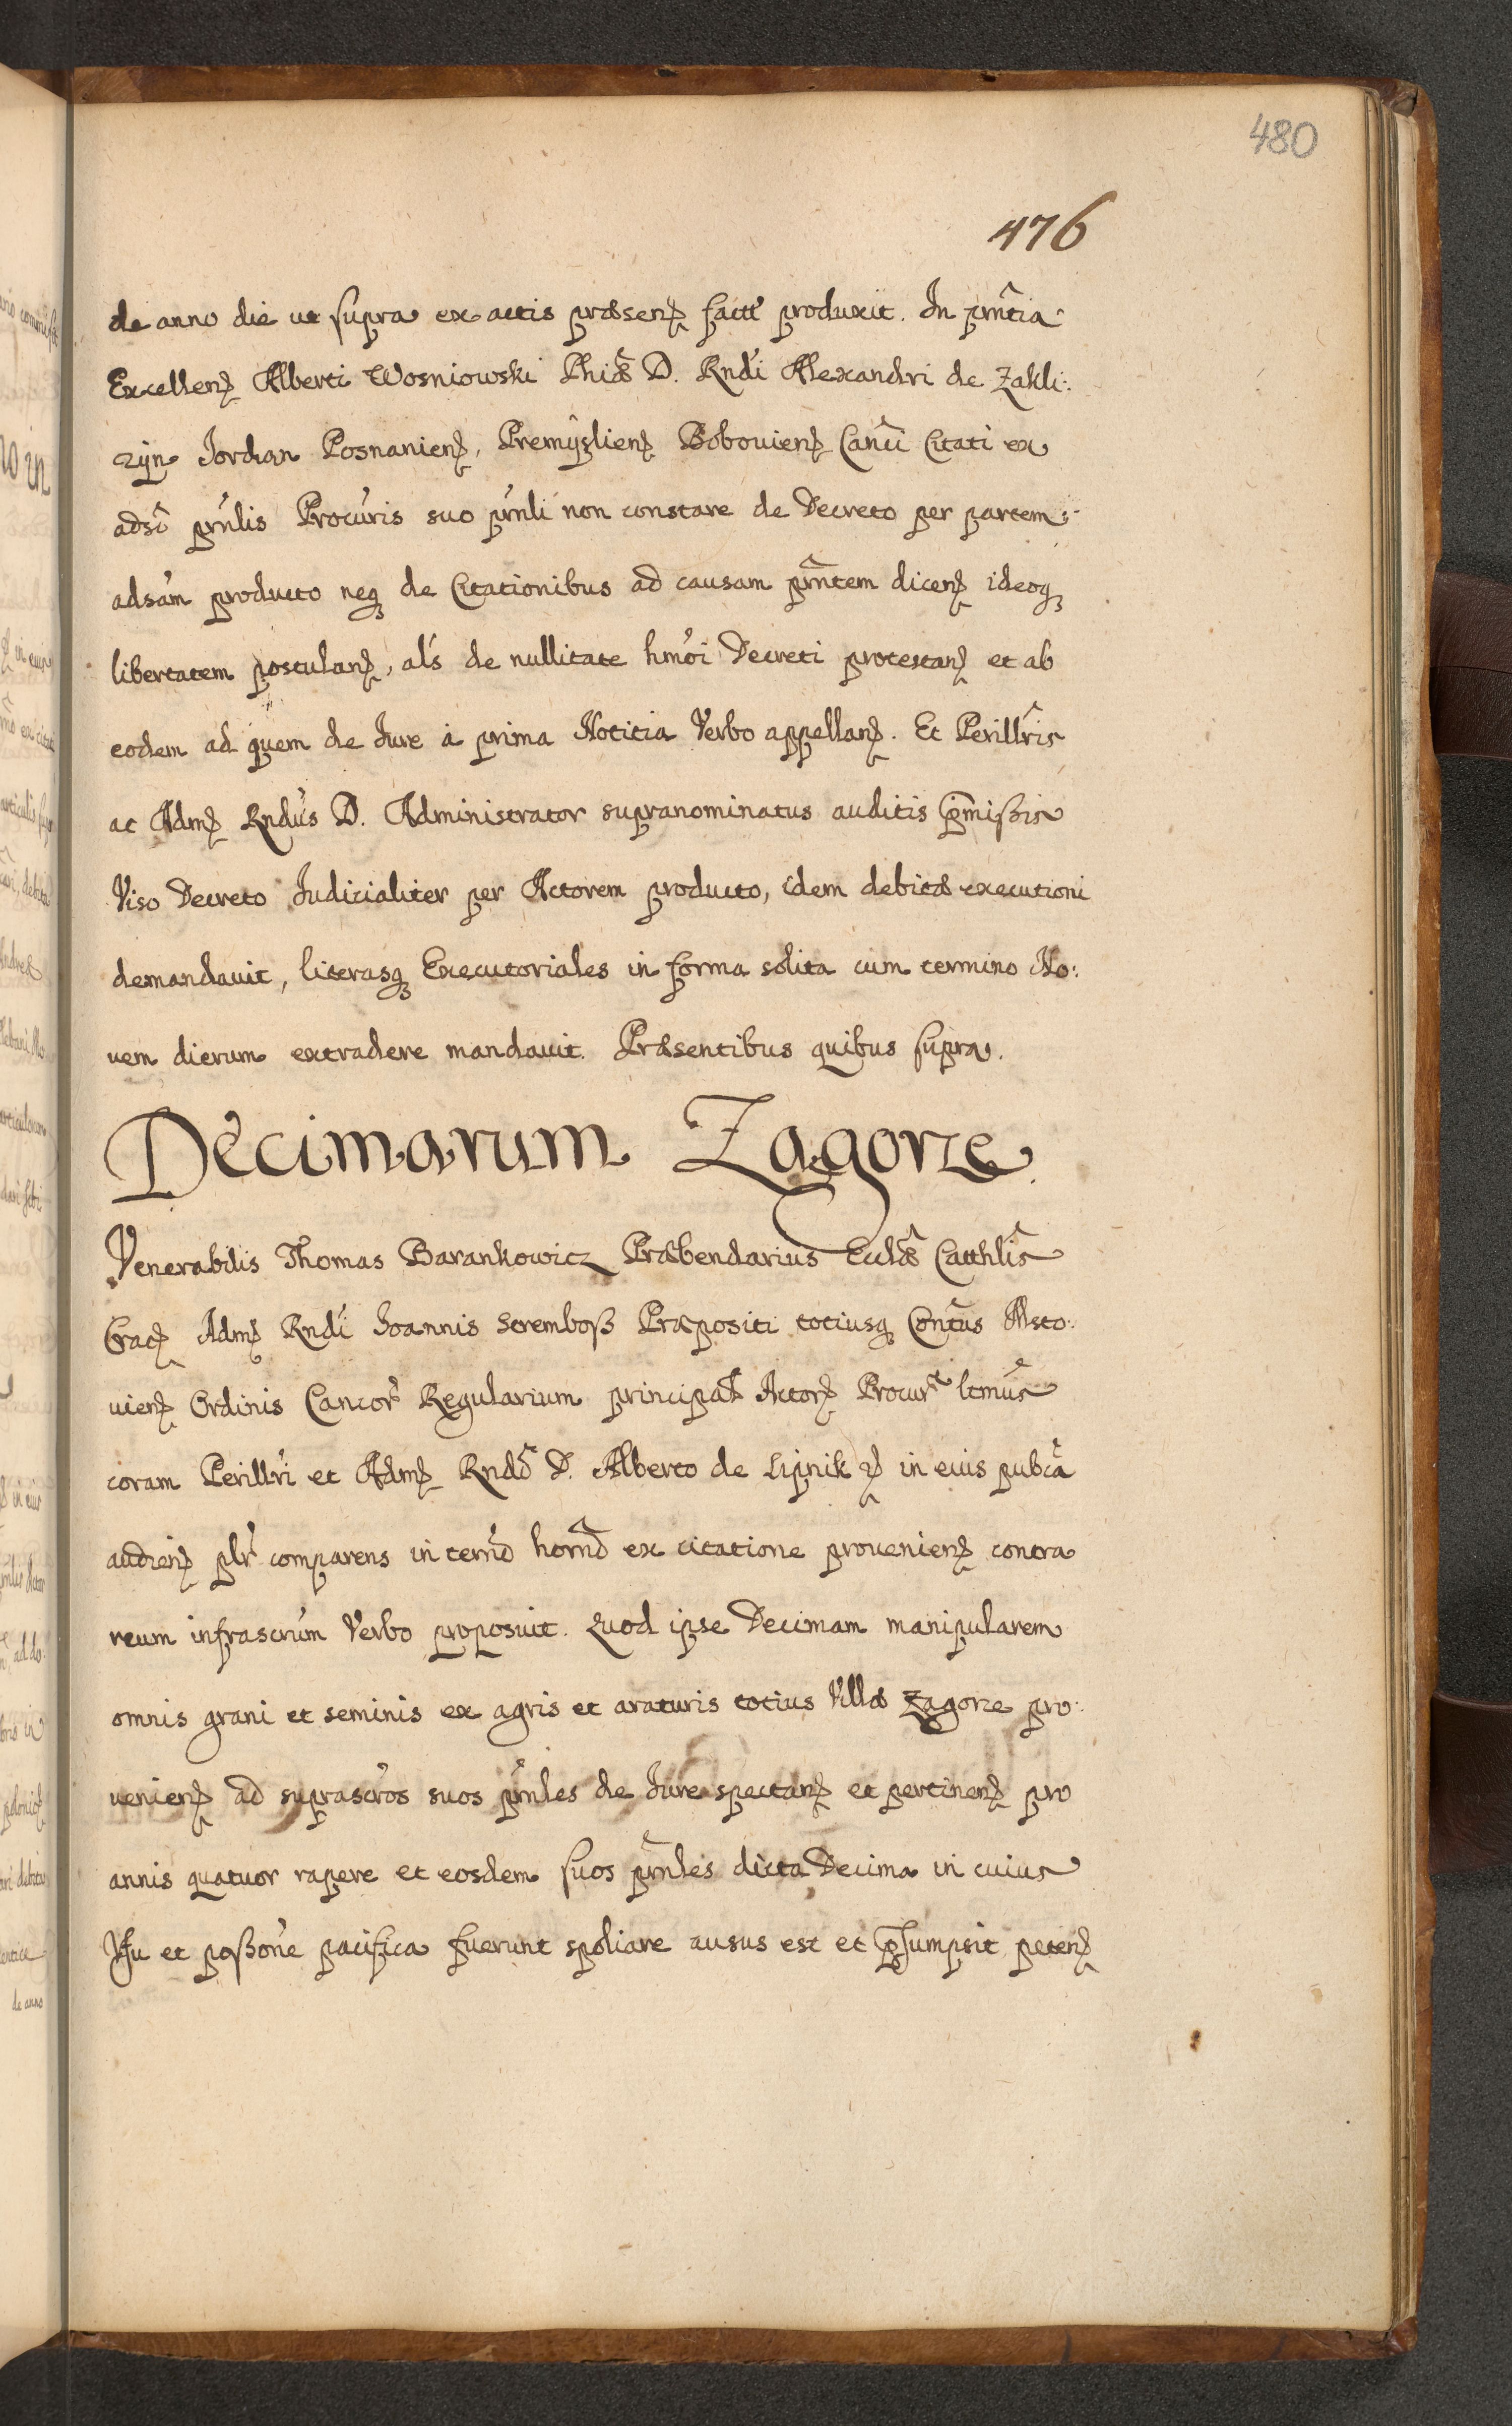 480
476
de anno die ut supra ex actis præsenꝫ factꝰ produxit. In pñtia
Excellenꝫ Alberti Wosniowski Phiæ D. Rndi Alexandri de Zakli:
czyn Jordan Posnanienꝫ, Premyslienꝫ Bobovienꝫ Canci Citati ex
adso prñlis Procuris suo prñli non constare de Decreto per partem
adsam producto neqꝫ de Citationibus ad causam prñtem dicenꝫ ideoqꝫ
libertatem postulanꝫ, als de nullitate hmoi Decreti protestanꝫ et ab
eodem ad quem de Jure a prima Notitia Verbo appellanꝫ. Et Perillris
ac Admꝫ Rndus D. Administrator supranominatus auditis p̃mißis
Viso Decreto Judicialiter per Actorem producto, idem debitæ executioni
demandavit, literasqꝫ Executoriales in forma solita cum termino No:
vem dierum extradere mandavit. Præsentibus quibus supra.
Decimarum Zagorze.
Venerabilis Thomas Barankowicz Præbendarius Ecclæ Catthlis
Cracꝫ Admꝫ Rndi Joannis Stremboß Præpositi totiusqꝫ Contus Msto:
vienꝫ Ordinis Cancor Regularium principal Actorꝫ Procur ltmus
coram Perillri et Admꝫ Rndo D. Alberto de Lipnik ꝛꝫ in eius pubca
audienꝫ plr comparens in termo horno ex citatione provenienꝫ contra
reum infrascrum Verbo proposuit. Quod ipse Decimam manipularem
omnis grani et seminis ex agris et araturis totius Villæ Zagorze pro:
venienꝫ ad suprascros suos prñles de Jure spectanꝫ et pertinenꝫ pro
annis quatuor rapere et eosdem suos prñles dicta Decima in cuius
Usu et poßone pacifica fuerunt spoliare ausus est et p̃sumpsit petenꝫ